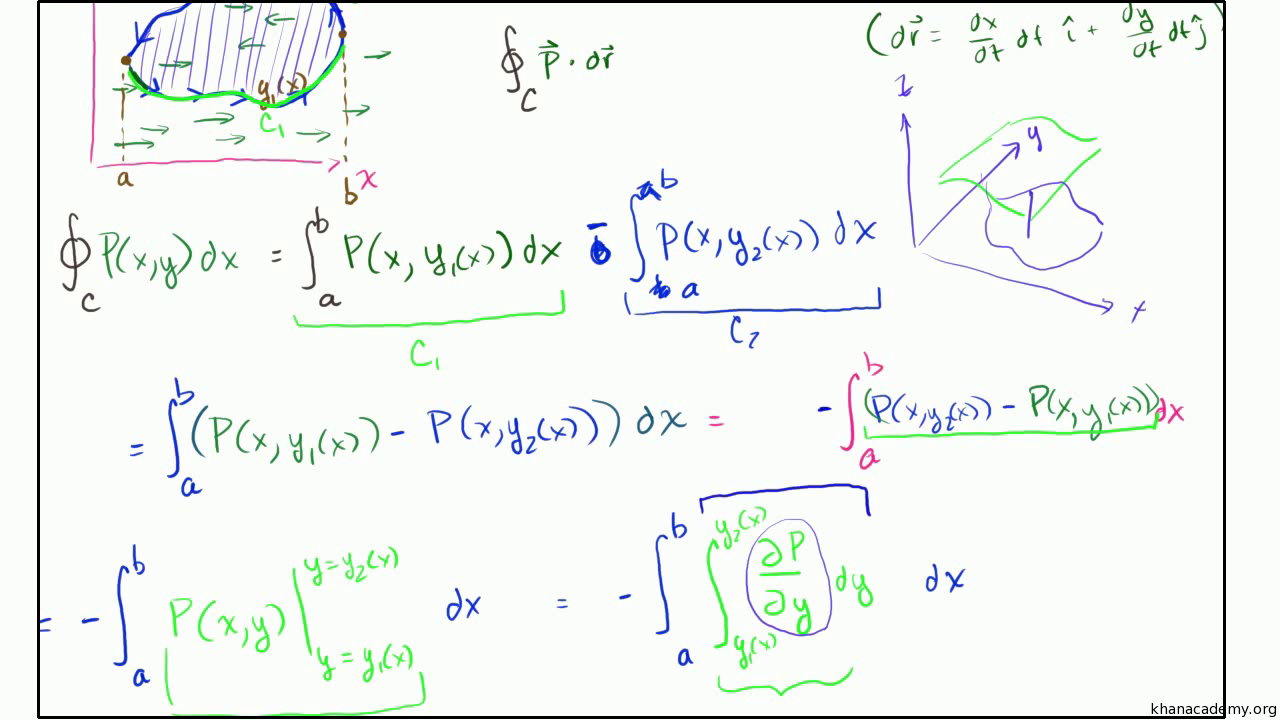 ∮_C P⃗ · dr⃗
(dr⃗ = dx/dt dt î + dy/dt dt ĵ)
y₁(x)
C₁
a
b
x
z
y
x
∮_C P(x,y)dx = ∫_a^b P(x, y₁(x)) dx - ∫_a^b P(x,y₂(x)) dx
C₁
C₂
= ∫_a^b (P(x,y₁(x)) - P(x,y₂(x))) dx = - ∫_a^b (P(x,y₂(x)) - P(x,y₁(x))) dx
= - ∫_a^b P(x,y) |_{y=y₁(x)}^{y=y₂(x)} dx = - ∫_a^b ∫_{y₁(x)}^{y₂(x)} ∂P/∂y dy dx
khanacademy.org